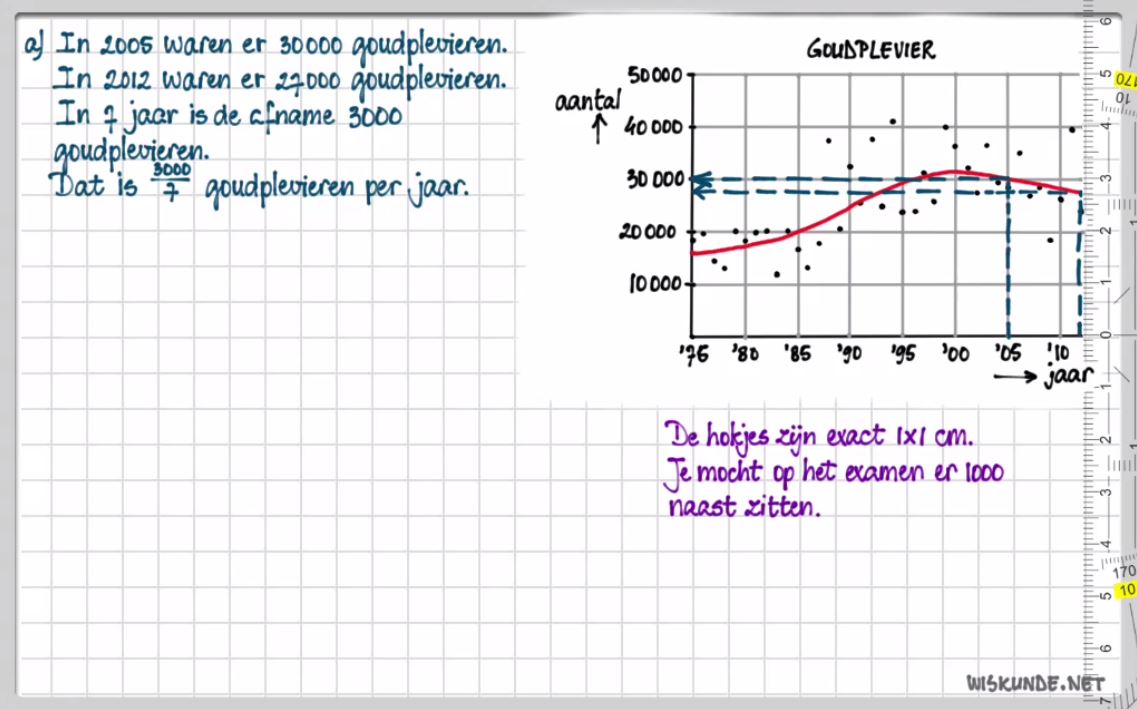 a) In 2005 waren er 30000 goudplevieren.
In 2012 waren er 27000 goudplevieren.
In 7 jaar is de afname 3000
goudplevieren.
Dat is 3000/7 goudplevieren per jaar.
GOUDPLEVIER
aantal
50000
40 000
30 000
20 000
10 000
'76 '80 '85 '90 '95 '00 '05 '10
jaar
De hokjes zijn exact 1x1 cm.
Je mocht op het examen er 1000
naast zitten.
6
5
4
3
2
1
0
1
2
3
4
5
6
7
170
10
170
10
WISKUNDE.NET